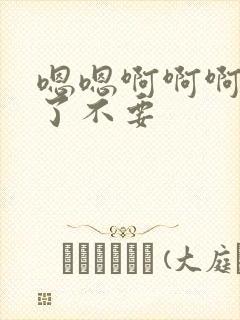 嗯嗯啊啊啊
了不要
(大庭